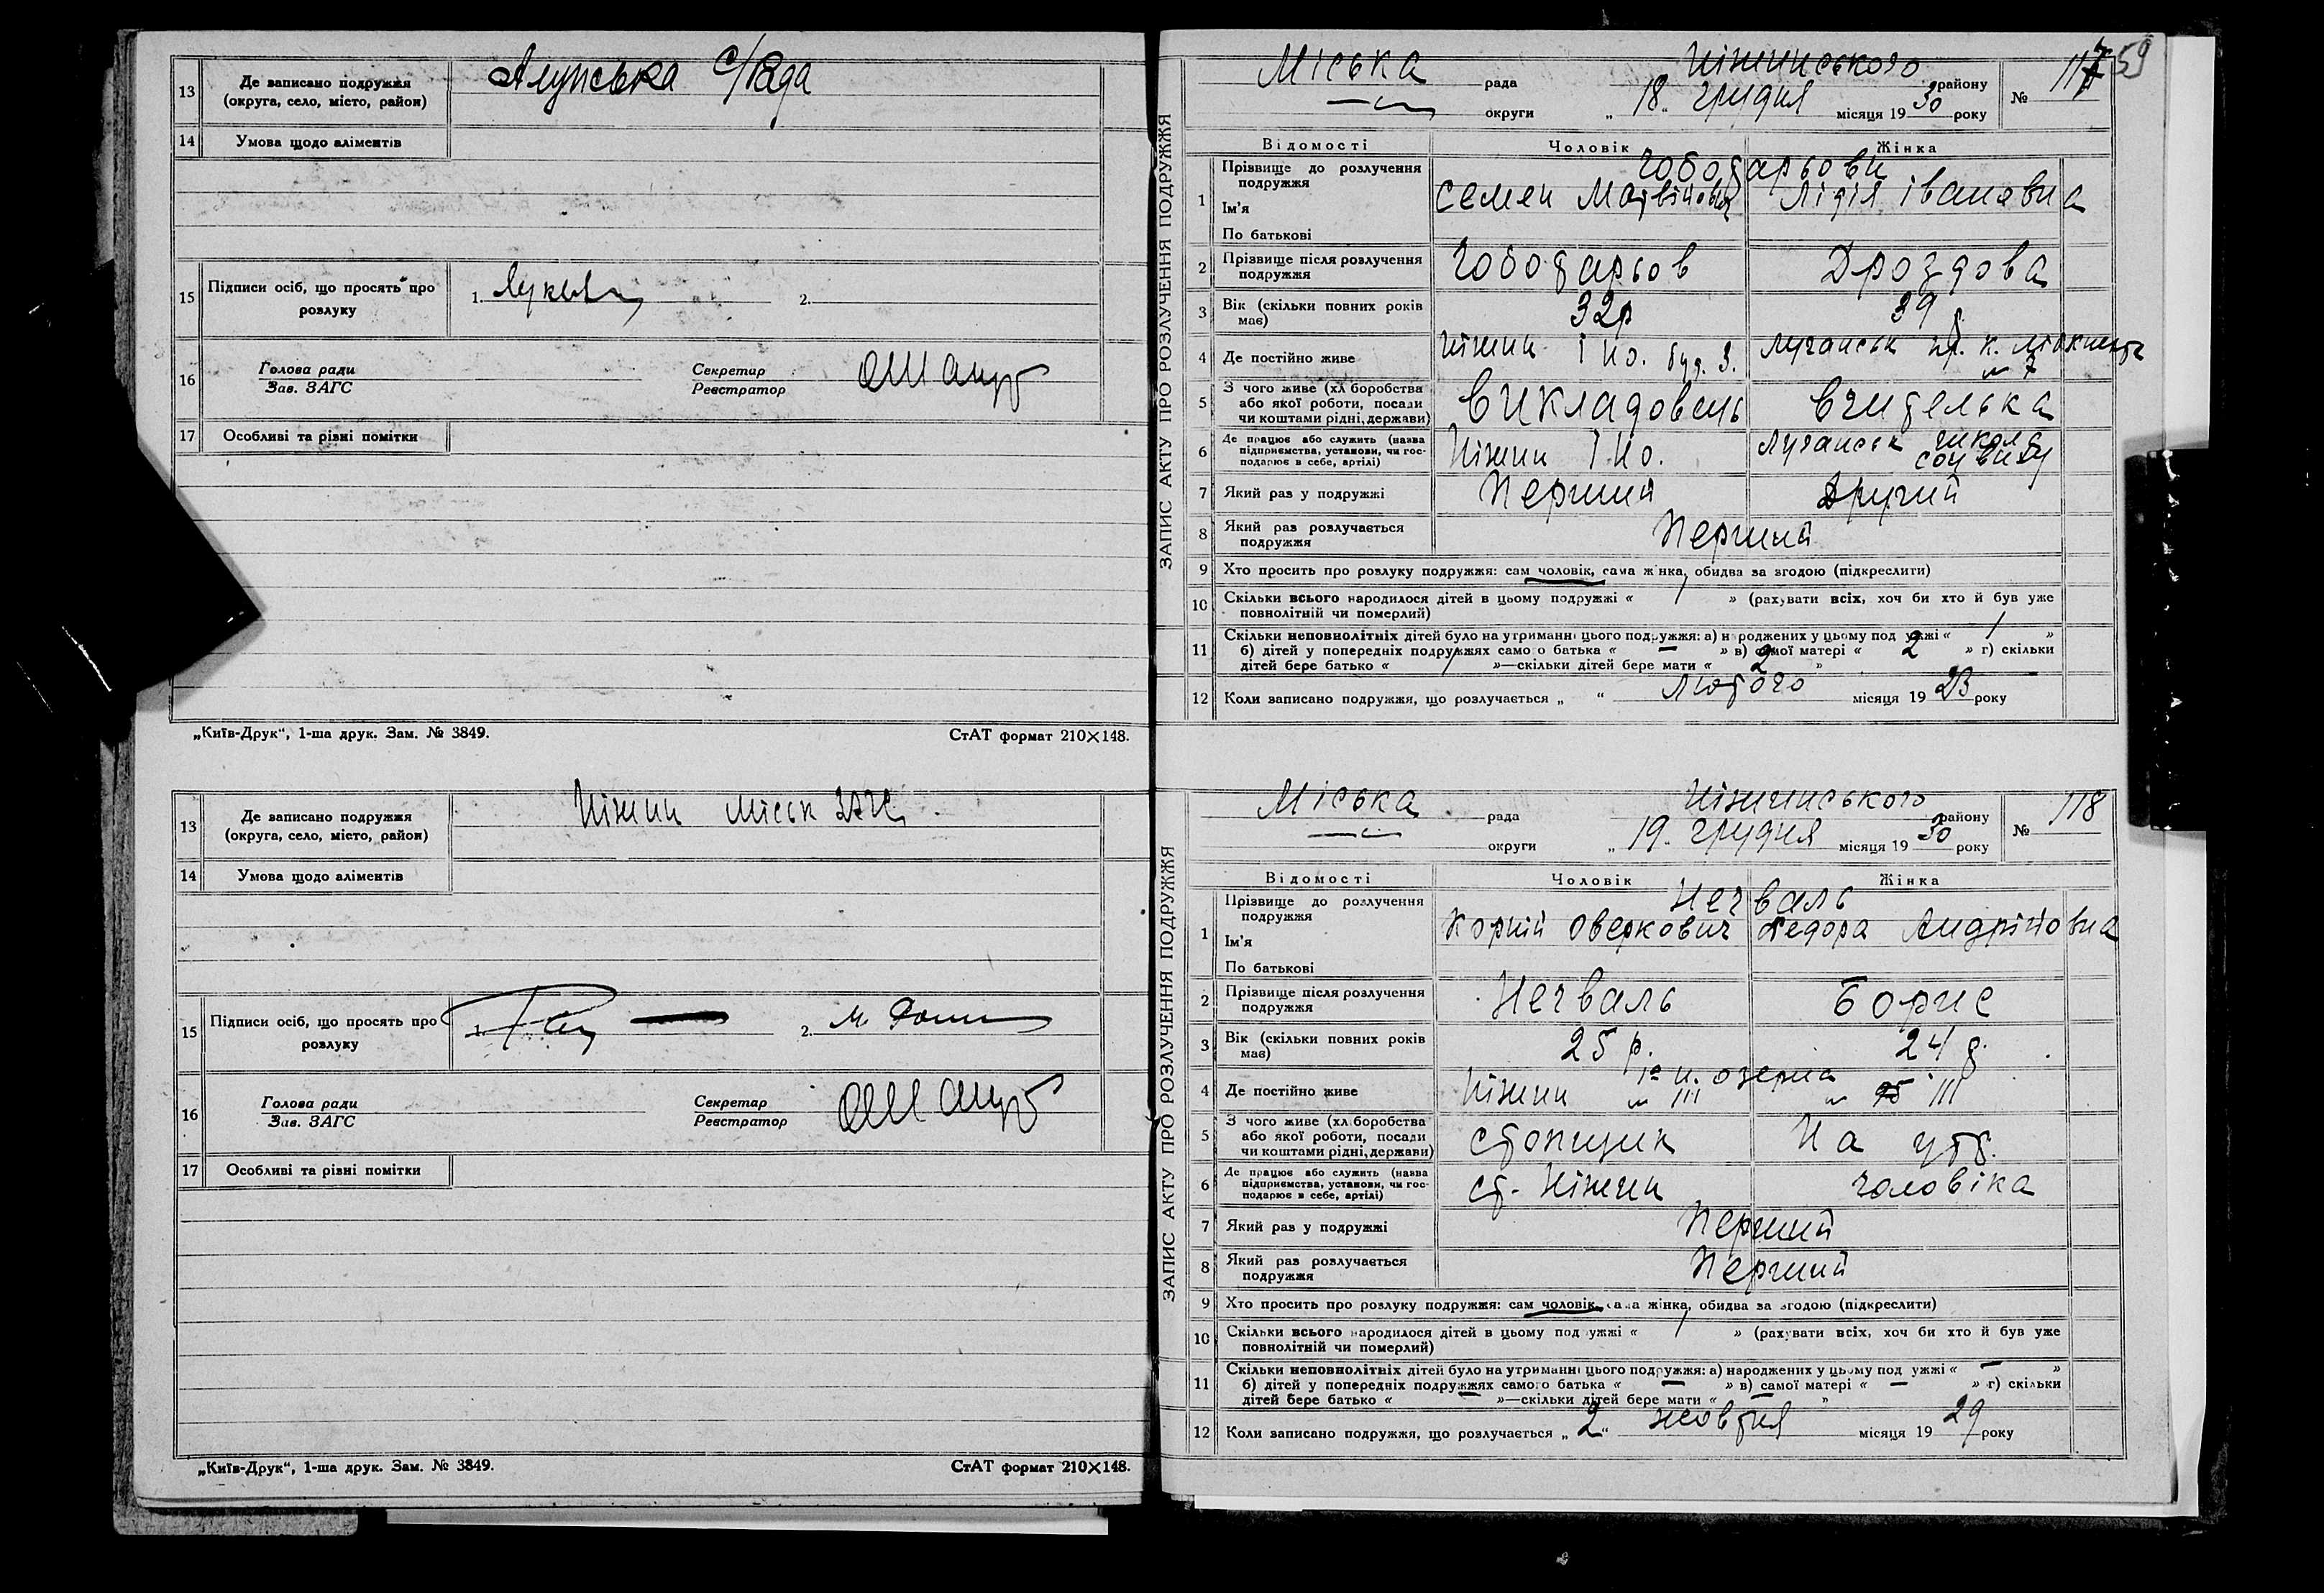 13 Де записано подружжя (округа, село, місто, район) Алупська с/Рада
14 Умова щодо аліментів
15 Підписи осіб, що просять про розлуку 1. 2.
16 Голова ради Зав. ЗАГС Секретар Реєстратор
17 Особливі та різні помітки
„Київ-Друк“, 1-ша друк. Зам. № 3849. СтАТ формат 210×148.
13 Де записано подружжя (округа, село, місто, район) Ніжин міськ ЗАГС
14 Умова щодо аліментів
15 Підписи осіб, що просять про розлуку 1. 2.
16 Голова ради Зав. ЗАГС Секретар Реєстратор
17 Особливі та різні помітки
„Київ-Друк“, 1-ша друк. Зам. № 3849. СтАТ формат 210×148.
59
ЗАПИС АКТУ ПРО РОЗЛУЧЕННЯ ПОДРУЖЖЯ
Міська рада Ніжинського району № 117
округи „18„ грудня місяця 1930 року
Відомості Чоловік Жінка
1 Прізвище до розлучення подружжя Чоботарьови
Ім'я Семен Матвійович Лідія Івановна
По батькові
2 Прізвище після розлучення подружжя Чоботарьов Дроздова
3 Вік (скільки повних років має) 32р 39 р
4 Де постійно живе Ніжин ІНО. буд. 3. Луганськ К. Лібкнехта № 7
5 З чого живе (хл боробства або якої роботи, посади чи коштами рідні, держави) Викладовець Вчителька
6 Де працює або служить (назва підприємства, установи, чи господарює в себе, артілі) Ніжин ІНО. Луганськ школа соцвиху
7 Який раз у подружжі Перший Другий
8 Який раз розлучається подружжя Перший
9 Хто просить про розлуку подружжя: сам чоловік, сама жінка, обидва за згодою (підкреслити)
10 Скільки всього народилося дітей в цьому подружжі « 1 » (рахувати всіх, хоч би хто й був уже повнолітній чи померлий)
11 Скільки неповнолітніх дітей було на утриманні цього подружжя: а) народжених у цьому подружжі « 1 »
б) дітей у попередніх подружжях самого батька « — » в) самої матері « 2 » г) скільки
дітей бере батько « / »—скільки дітей бере мати « 2 »
12 Коли записано подружжя, що розлучається „ “ Лютого місяця 1923 року
ЗАПИС АКТУ ПРО РОЗЛУЧЕННЯ ПОДРУЖЖЯ
Міська рада Ніжинського району № 118
округи „19„ грудня місяця 1930 року
Відомості Чоловік Жінка
1 Прізвище до розлучення подружжя Нечваль
Ім'я Корній Оверкович Федора Андрійовна
По батькові
2 Прізвище після розлучення подружжя Нечваль Борис
3 Вік (скільки повних років має) 25 р. 24 р.
4 Де постійно живе Ніжин озерна № 111 № 111
5 З чого живе (хл боробства або якої роботи, посади чи коштами рідні, держави) стопщик На утр.
6 Де працює або служить (назва підприємства, установи, чи господарює в себе, артілі) ст. Ніжин чоловіка
7 Який раз у подружжі Перший
8 Який раз розлучається подружжя Перший
9 Хто просить про розлуку подружжя: сам чоловік, сама жінка, обидва за згодою (підкреслити)
10 Скільки всього народилося дітей в цьому подружжі « / » (рахувати всіх, хоч би хто й був уже повнолітній чи померлий)
11 Скільки неповнолітніх дітей було на утриманні цього подружжя: а) народжених у цьому подружжі « — »
б) дітей у попередніх подружжях самого батька « — » в) самої матері « — » г) скільки
дітей бере батько « — »—скільки дітей бере мати « — »
12 Коли записано подружжя, що розлучається „2“ жовтня місяця 1929 року